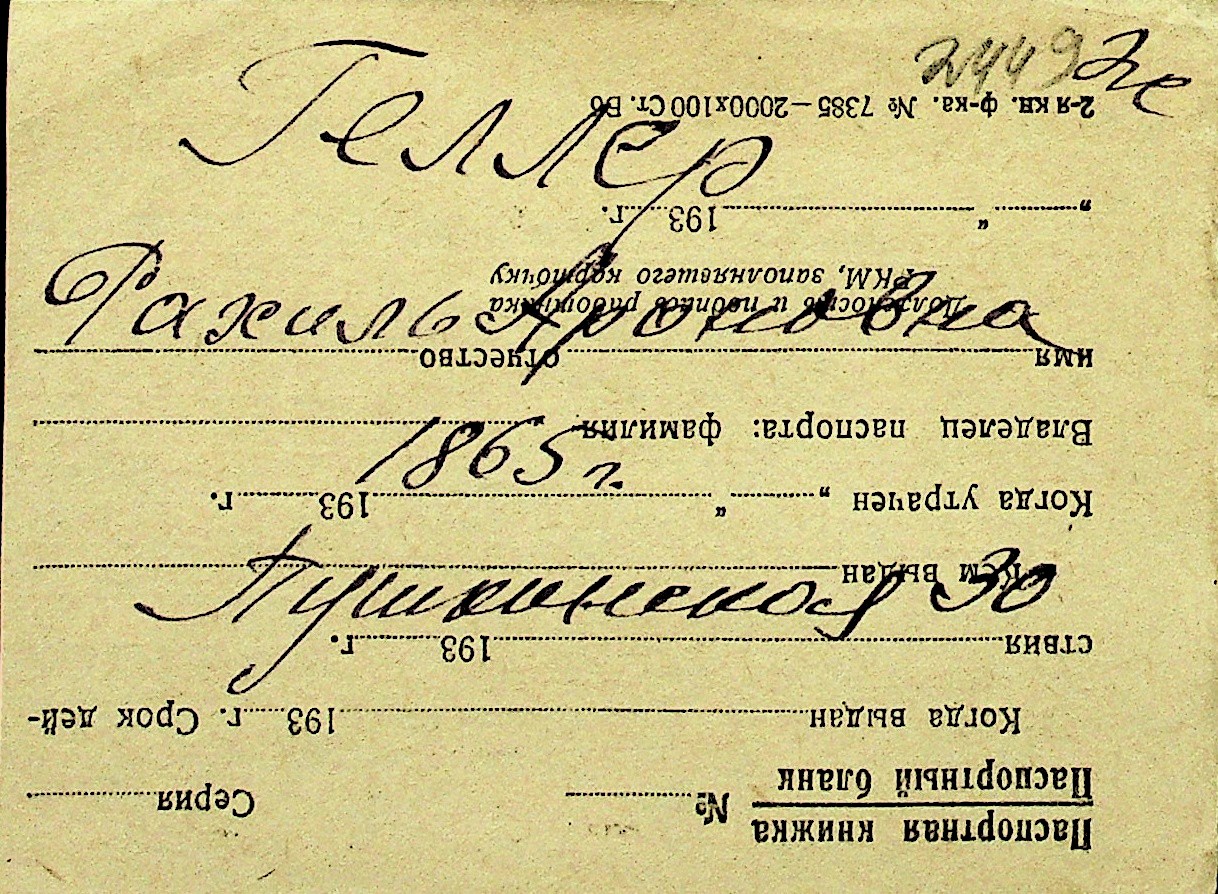 24493
Геллер
Рахиль Ароновна
1865 г.
Пушкинская 30
Паспортная книжка
Паспортный бланк
№ Серия
Когда выдан 193 г. Срок дей-
ствия 193 г.
Кем выдан
Когда утрачен „ “ 193 г.
Владелец паспорта: фамилия
имя отчество
Должность и подпись работника
РКМ, заполнявшего карточку
„ “ 193 г.
2-я кн. ф-ка. № 7385—2000х100 Ст. Б6